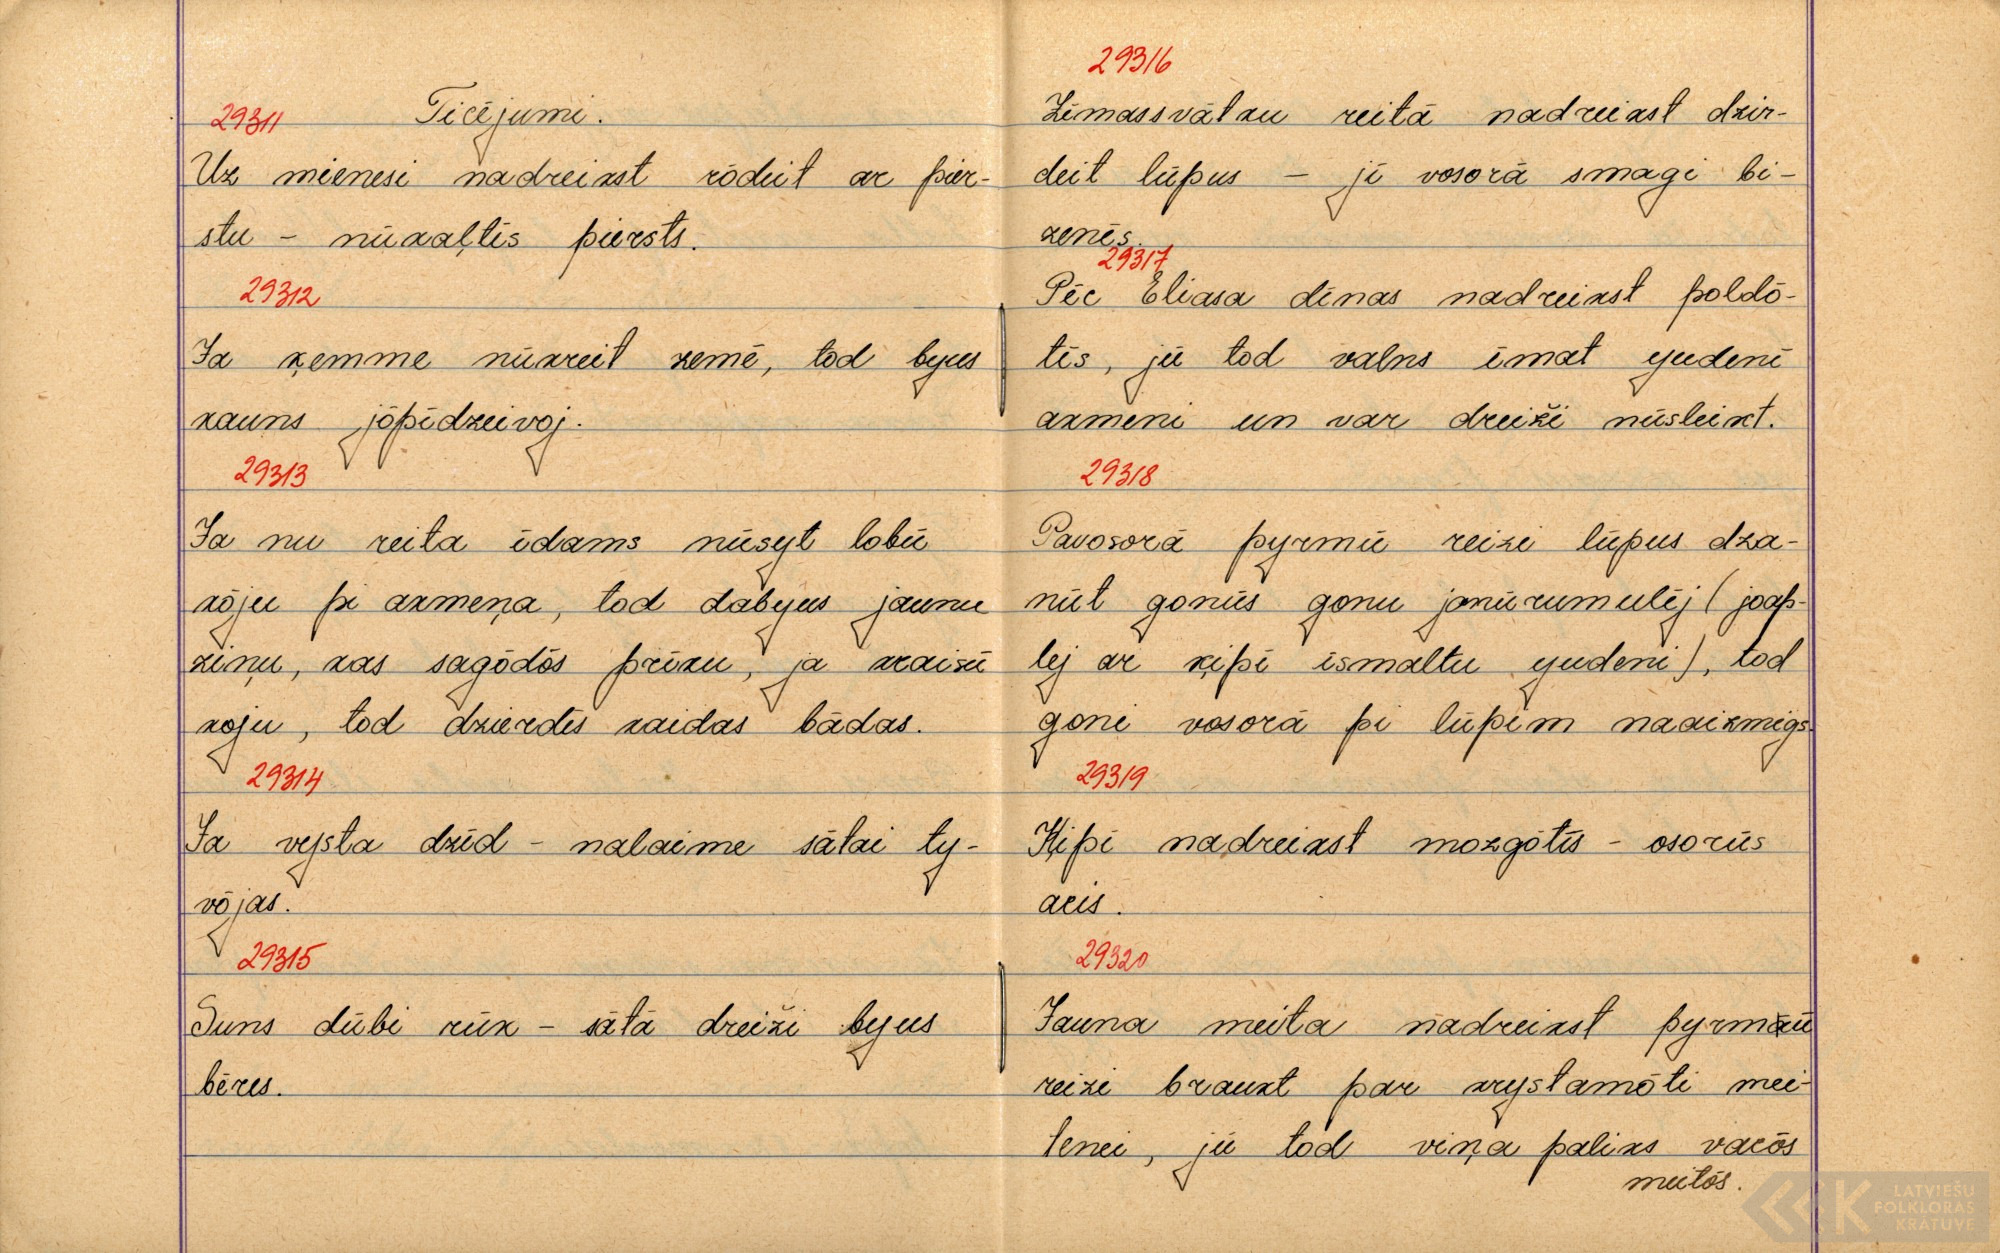 29311
Ticējumi.
Uz mienesi nadreikst rōdeit ar pier-
stu - nūkaļtīs piersts.
29312
Ja ķemme nūkreit zemē, tod byus
kauns jōpīdzeivoj.
29313
Ja nu reita īdams nūsyt lobū
kōju pi akmeņa, tod dabyus jaunu
ziņu, kas sagōdōs prīku, ja kraisū
koju, tod dzierdēs kaidas bādas.
29314
Ja vysta dzīd - nalaime sātai ty-
vōjas.
29315
Suns dūbi rūk - sātā dreiži byus
bēres.
29316
Zīmassvātku reitā nadreikst dzir-
deit lūpus - jī vosorā smagi bi-
zenēs.
29317
Pēc Eliasa dīnas nadreikst poldō-
tīs, jū tod valns īmat yudenī
akmeni un var dreiži nūsleikt.
29318
Pavosorā pyrmū reizi lūpus dza-
nūt gonūs gonu jonūrumulēj (joap-
lej ar ķipī īsmaltu yudeni), tod
goni vosorā pi lūpim naaizmigs.
29319
Ķipī nadreikst mozgōtīs - osorūs
acis.
29320
Jauna meita nadreikst pyrmū
reizi braukt par krystamōti mei-
tenei, jū tod viņa paliks vacōs
meitōs.
LATVIEŠU
FOLKLORAS
KRĀTUVE